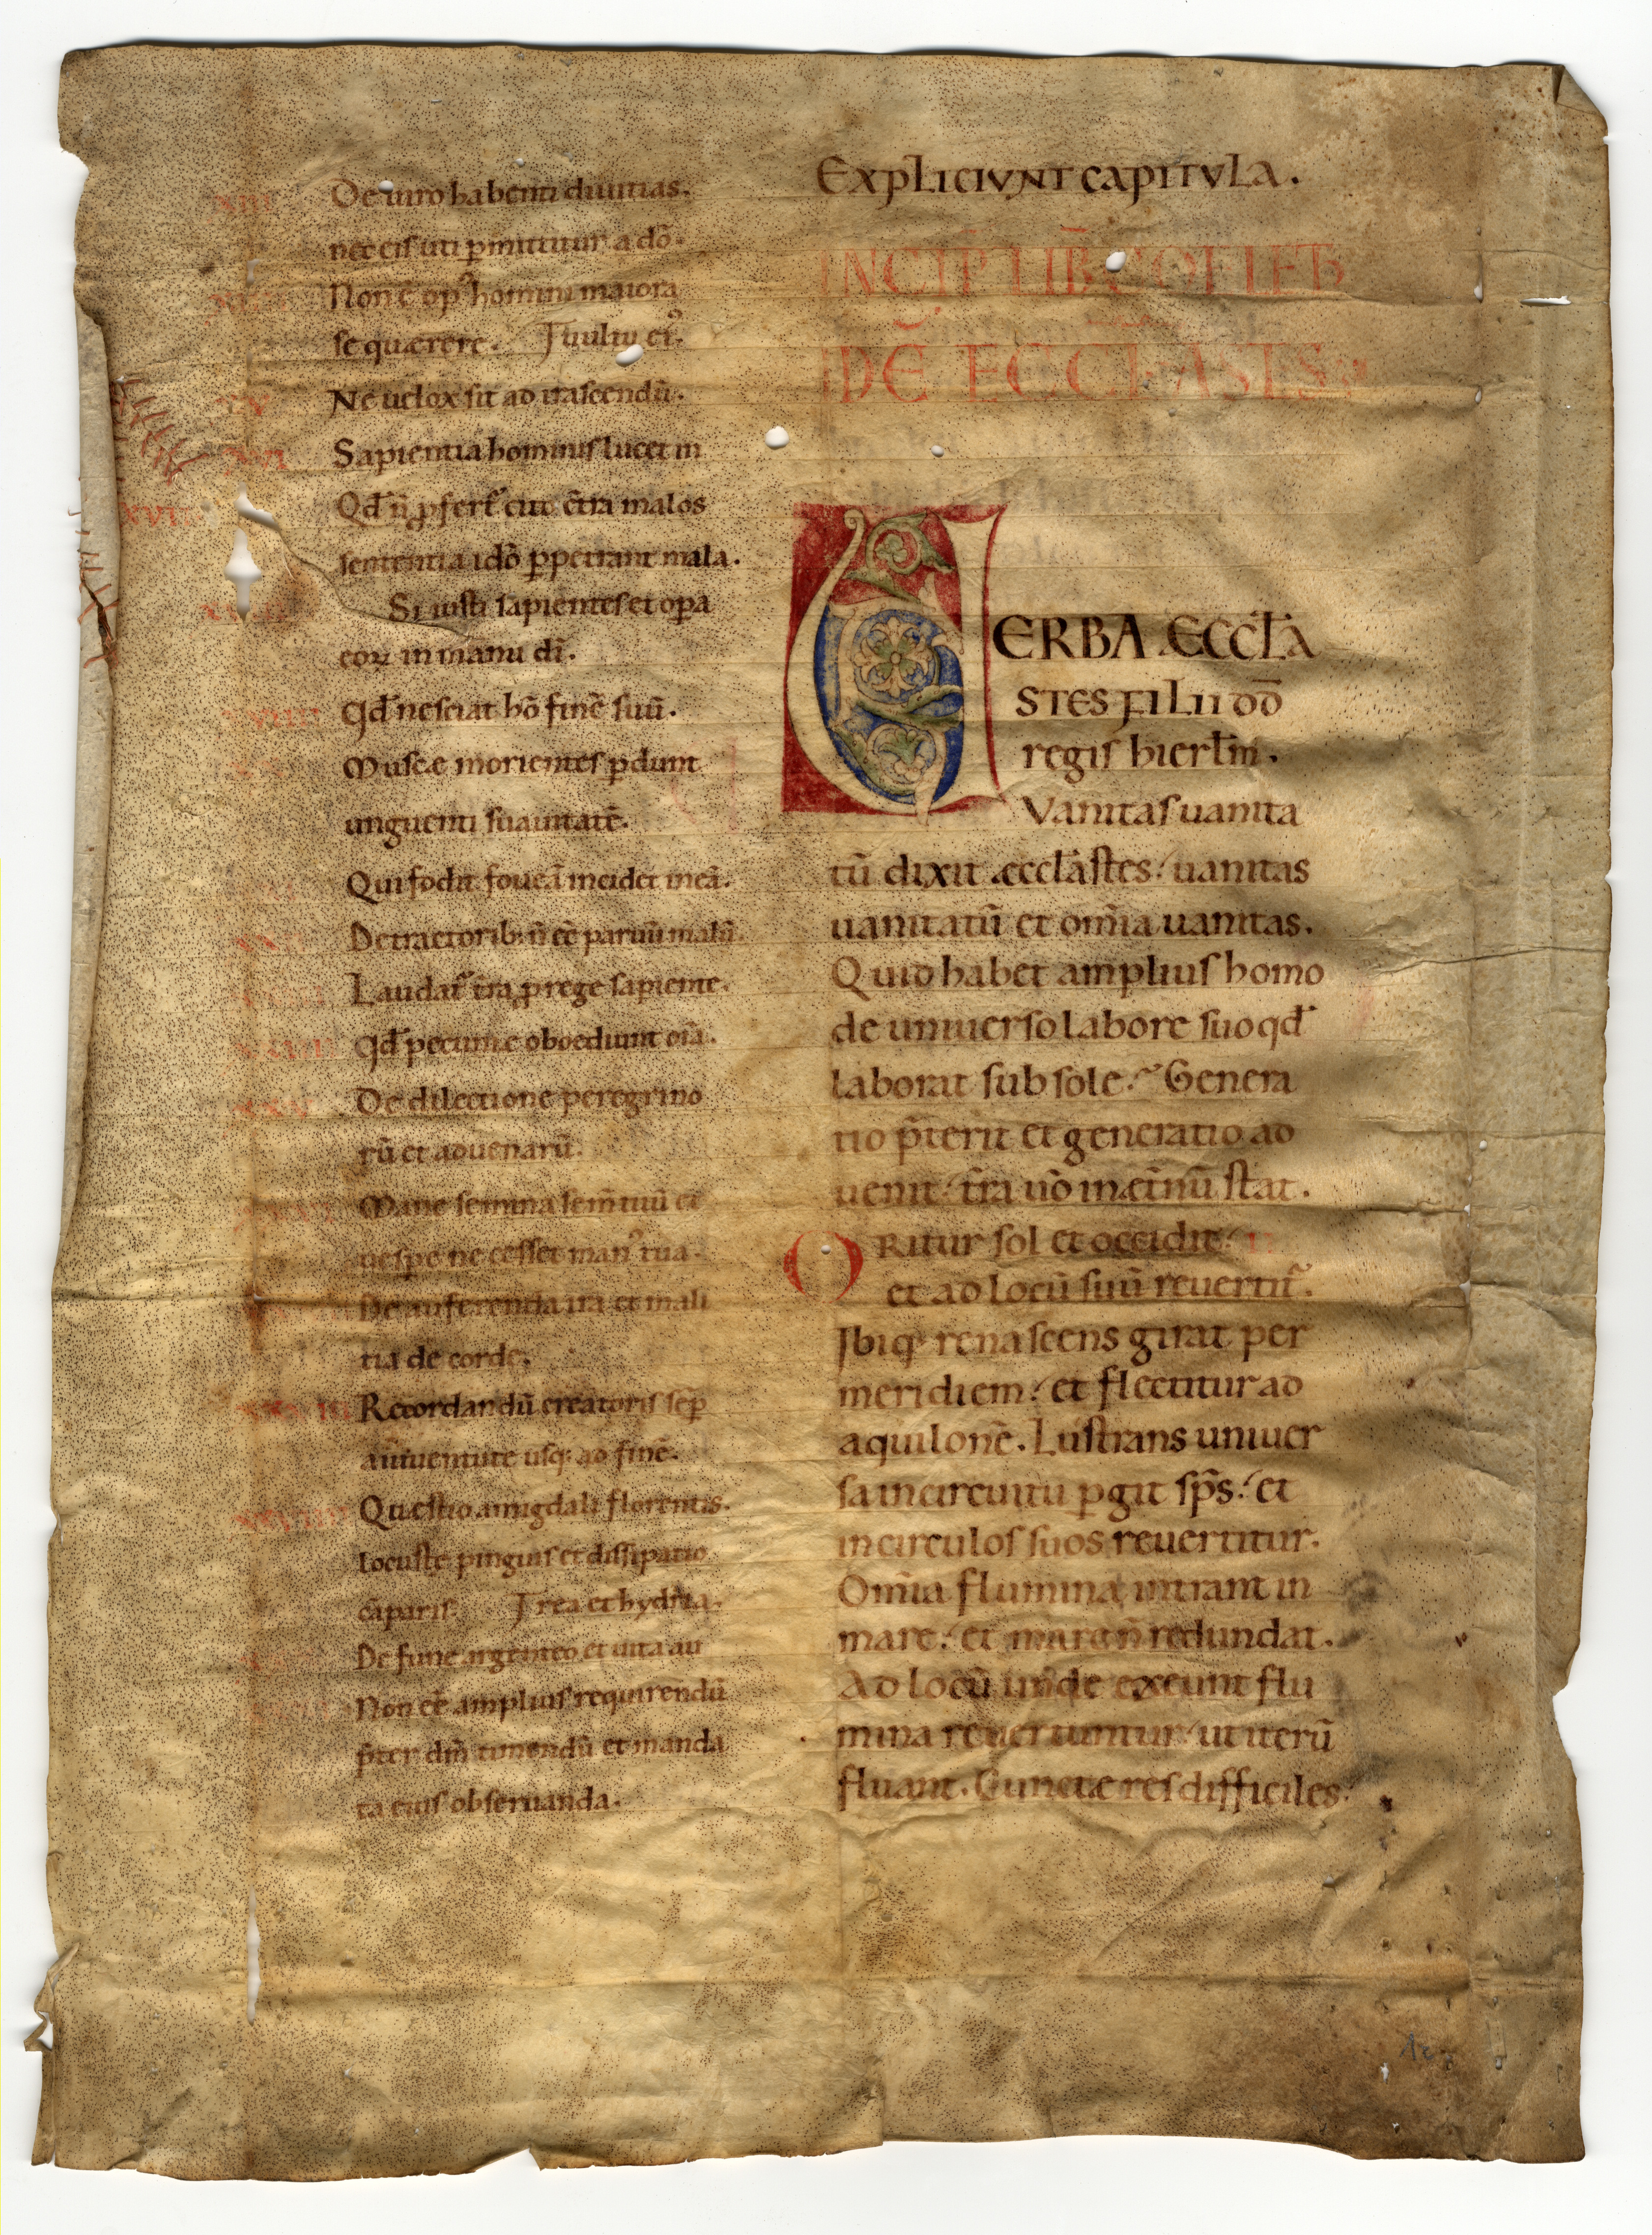 De uiro habenti diuitias.
nec eis uti p̱mittitur a dō.
Non ē op᾽ homini maiora
se quærere. ſ uultu ei᾽.
XV Ne uelox sit ad irascendū.
XVI Sapientia hominis lucet in
XVII Qd̄ n̄ ꝓfert᷑ cito ct̄ra malos
sententia idō ꝑpetrant mala.
Si iusti sapientes et opa
eoꝝ in manu dī.
XVIIII qd̄ nesciat hō finē suū.
Muscæ morientes ꝑdunt
unguenti suauitatē.
Qui fodit foueā incidet in eā.
Detractorib; n̄ eē paruū malū.
Laudat᷑ t̄ra ꝓ rege sapiente.
qd̄ pecuniæ oboediunt oīa.
XXV De dilectione peregrino
rū et aduenarū.
Mane semina sem̄ tuū et
uespe ne cesset man᾽ tua.
De auferenda ira et mali
tia de corde.
Recordandū creatoris sēp
a iuuentute usq; ad finē.
XXVIIII Quæstio amigdali florentis.
locustę pinguis et dissipatio
cāparis. ſ rea et hydria.
De fune argenteo et uita au
Non eē amplius requirendū
p̄ter dm̄ timendū et manda
ta eius obseruanda.
EXPLICIVNT CAPITVLA.
INCIP̄ LIB̄ COELETH
ID Ē ECCLASTS
VERBA ÆCCL̄A
STES FILII DD̄
regis hierłm.
Vanitas uanita
tū dixit æccl̄astes. uanitas
uanitatū et om̄ia uanitas.
Quid habet amplius homo
de uniuerso labore suo qd̄
laborat sub sole. Genera
tio p̄terit et generatio ad
uenit. t̄ra uō in æt̄nū stat.
ORitur sol et occidit. II
et ad locū suū reuertit᷑.
Ibiq; renascens girat per
meridiem. et flectitur ad
aquilonē. Lustrans uniuer
sa in circuitu ꝑgit sp̄s. et
in circulos suos reuertitur.
Om̄ia flumina intrant in
mare. et mare n̄ redundat.
Ad locū unde exeunt flu
mina reuertuntur. ut iterū
fluant. Cunctæ res difficiles.